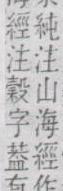 純注山海經作
海經注穀字蓋有